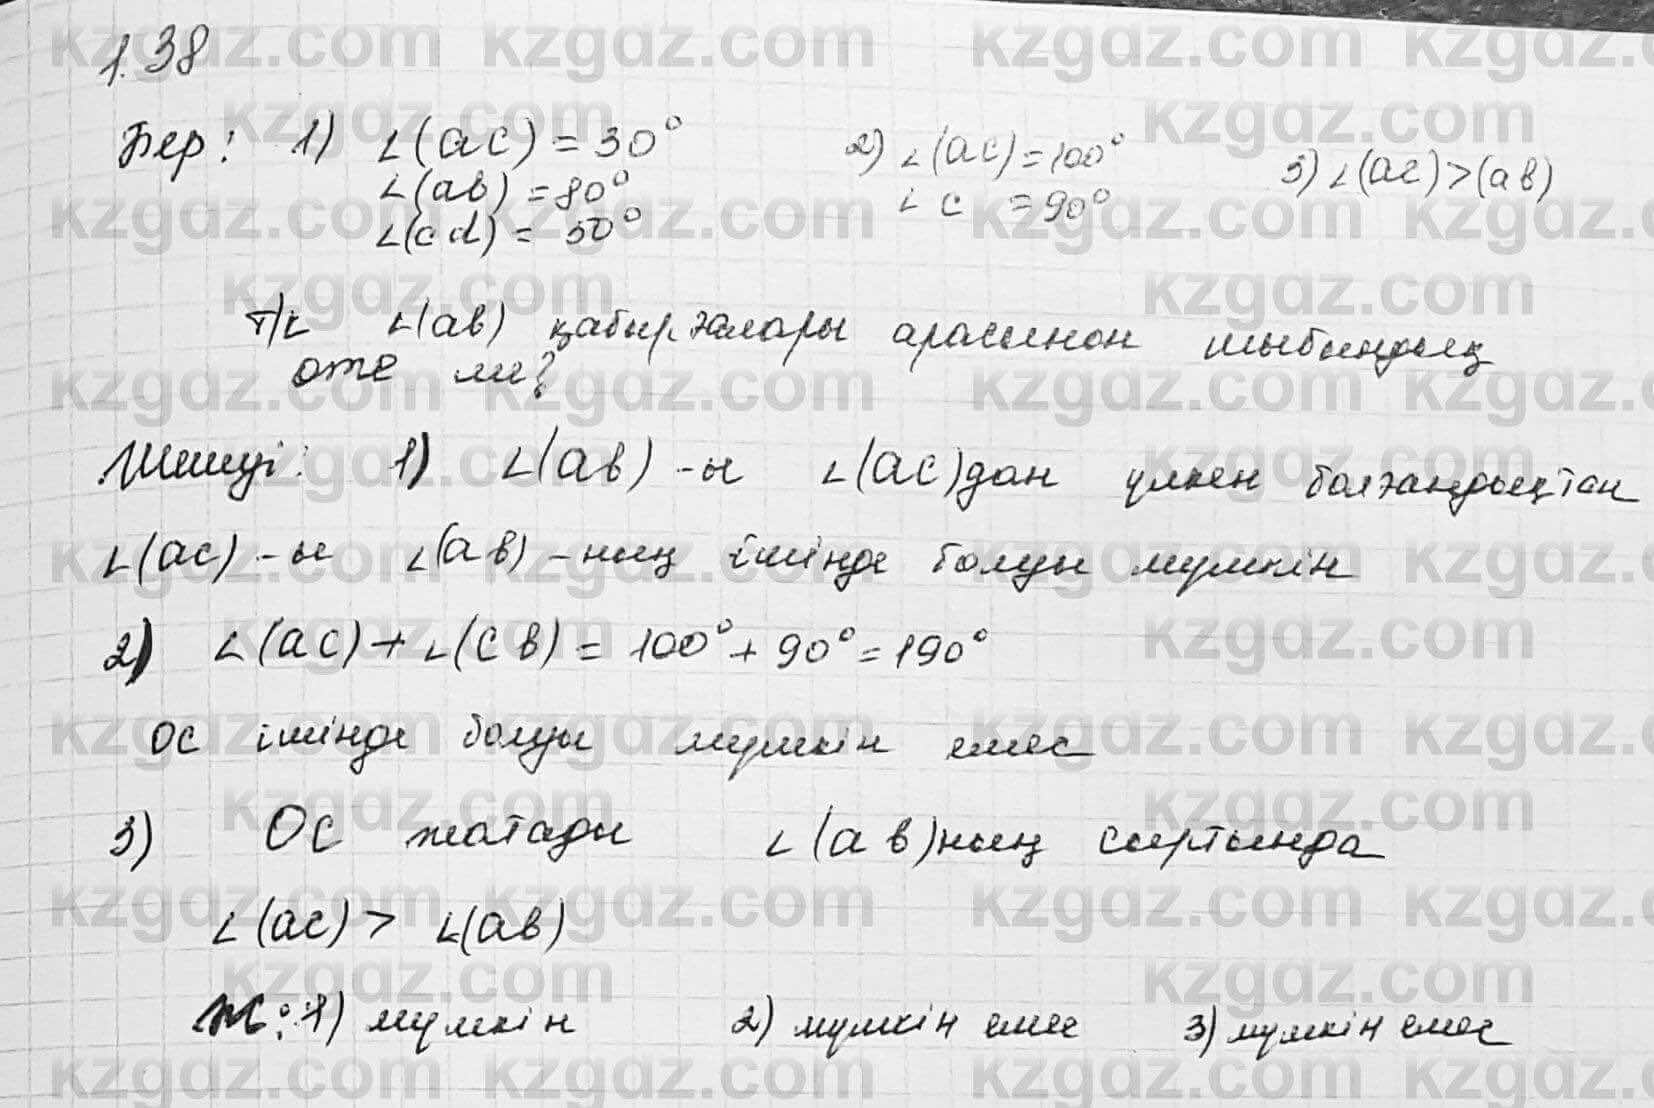 1.38
Бер: 1) ∠(ac) = 30° 2) ∠(ac) = 100° 3) ∠(ac) > (ab)
∠(ab) = 80° ∠c = 90°
∠(cd) = 50°
Т/к ∠(ab) қабырғалары арасынан шыбындық
өте ме?
Шешуі: 1) ∠(ab) -ы ∠(ac)дан үлкен болғандықтан
∠(ac) -ы ∠(ab) -ның ішінде болуы мүмкін
2) ∠(ac) + ∠(cb) = 100° + 90° = 190°
ОС ішінде болуы мүмкін емес
3) ОС жатады ∠(ab)ның сыртында
∠(ac) > ∠(ab)
Ж: 1) мүмкін 2) мүмкін емес 3) мүмкін емес
kzgaz.com